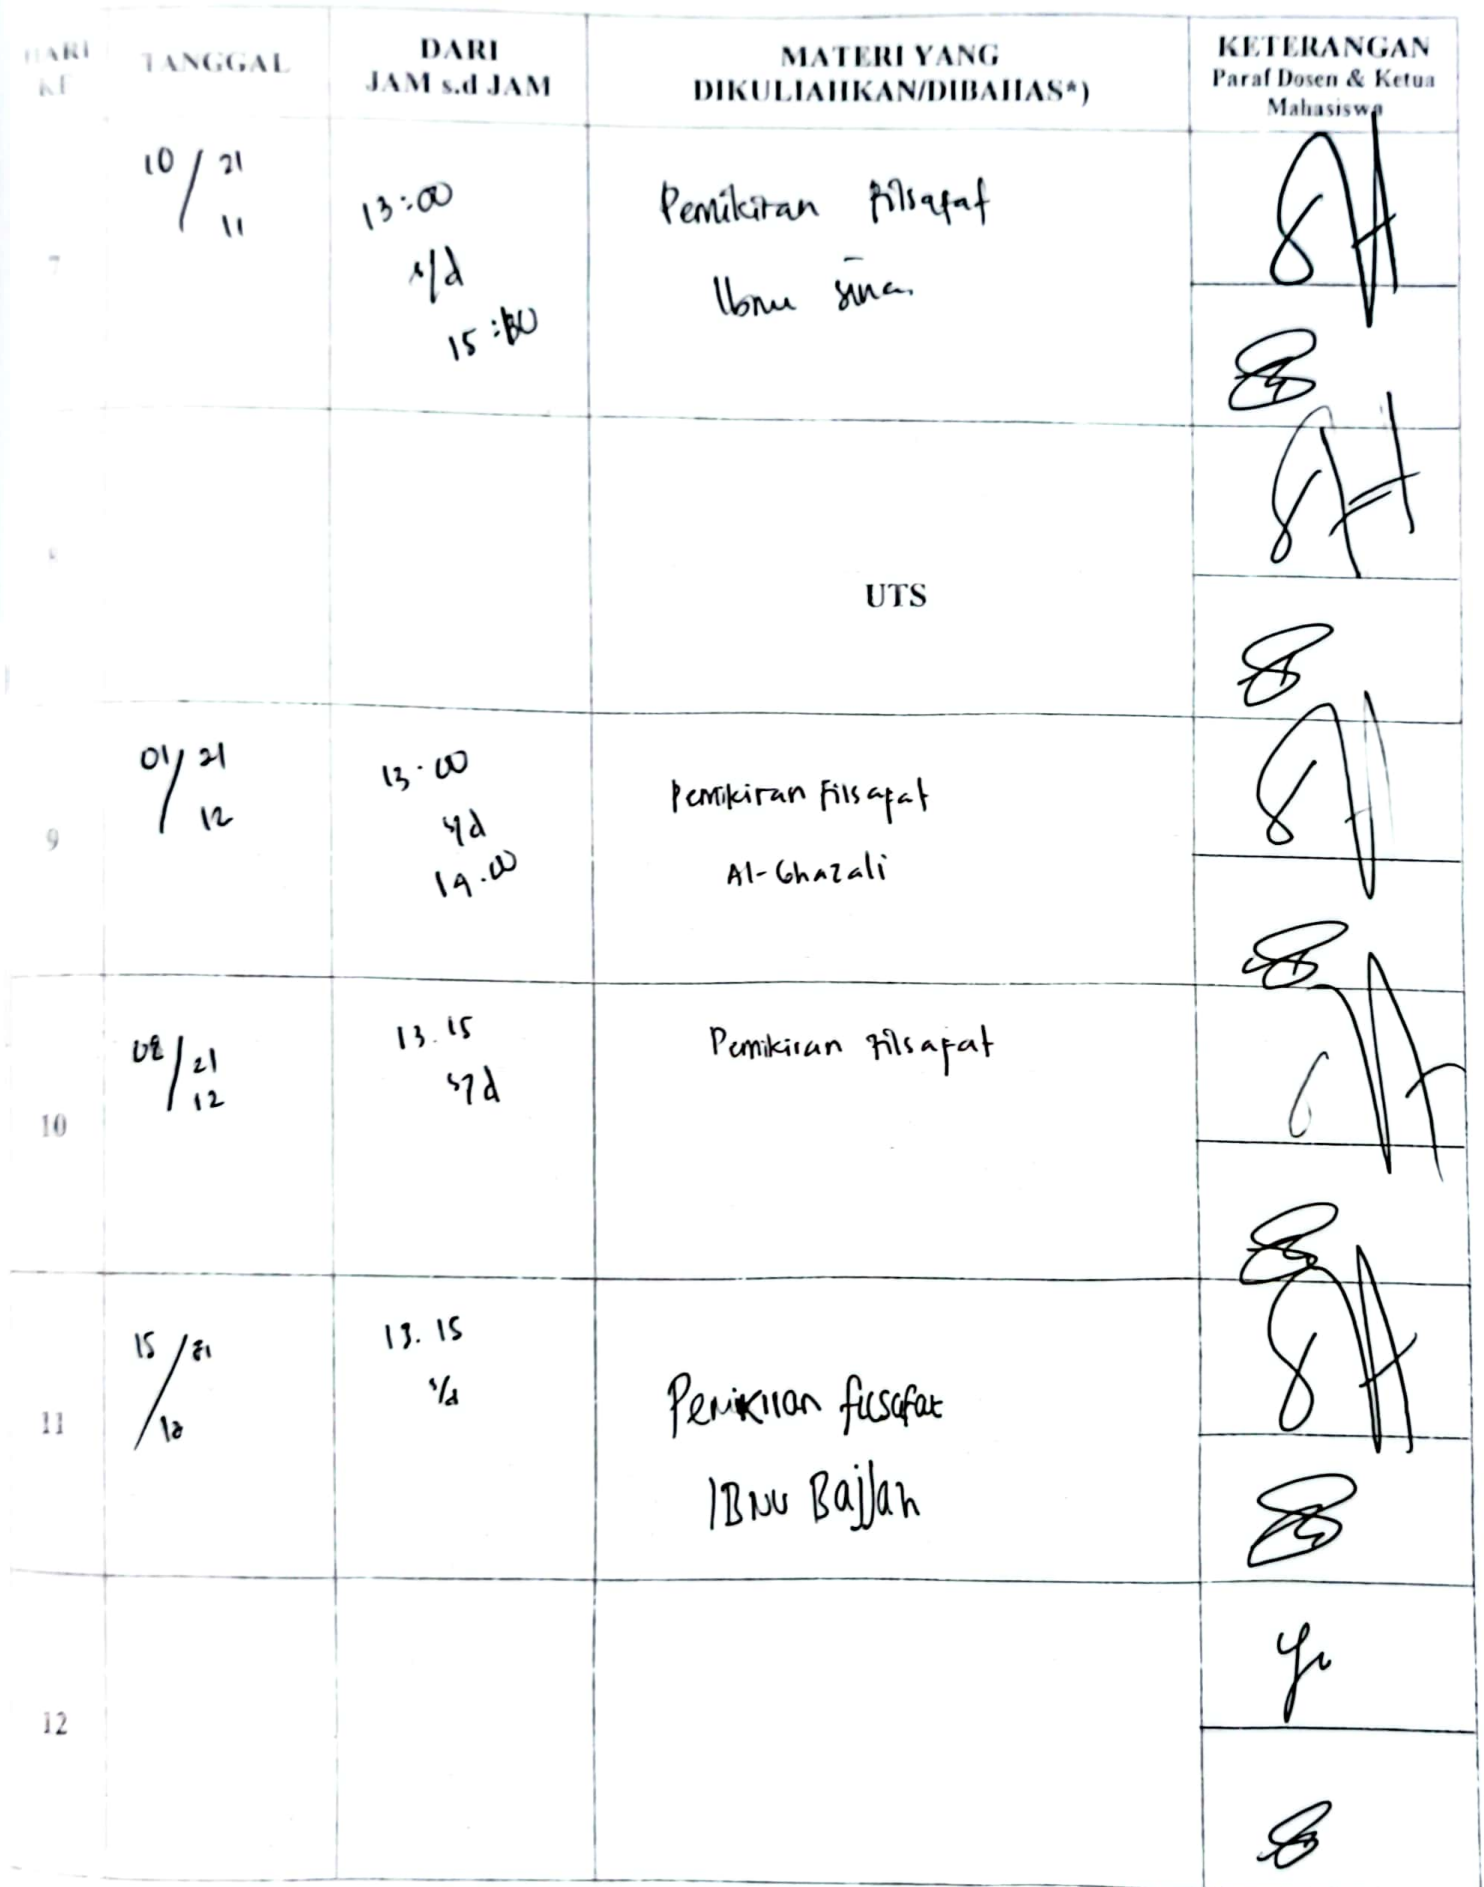 HARI
KE
TANGGAL
DARI
JAM s.d JAM
MATERI YANG
DIKULIAHKAN/DIBAHAS*)
KETERANGAN
Paraf Dosen & Ketua
Mahasiswa
7
10/21
11
13:00
s/d
15:30
Pemikiran Filsafat
Ibnu Sina.
8
UTS
9
01/21
12
13.00
s/d
14.00
Pemikiran Filsafat
Al-Ghazali
10
08/21
12
13.15
s/d
Pemikiran Filsafat
11
15/21
12
13.15
s/d
Pemikiran filsafat
IBNU Bajjah
12